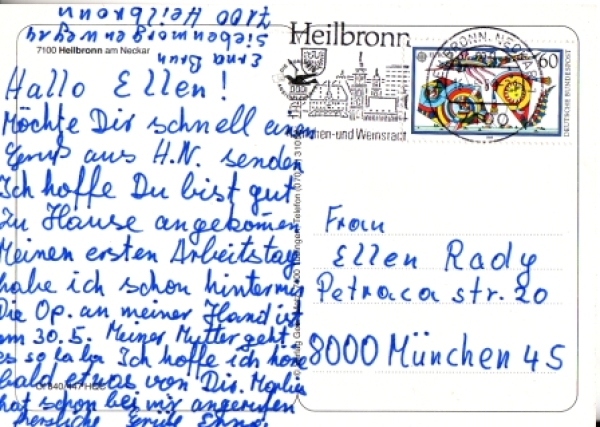 7100 Heilbronn
Siebenmorgenweg 9
Erna Brun
7100 Heilbronn am Neckar
Hallo Ellen!
Möchte Dir schnell einen
Gruß aus H.N. senden
Ich hoffe Du bist gut
zu Hause angekomen
Meinen ersten Arbeitstag
habe ich schon hinter mir
Die Op. an meiner Hand ist
am 30.5. Meiner Mutter geht
es so la la Ich hoffe ich höre
bald etwas von Dir. Marlies
hat schon bei mir angerufen
herzliche Grüße Erna.
Heilbronn
und Weinstadt
60
DEUTSCHE BUNDESPOST
Frau
Ellen Rady
Petraca str. 20
8000 München 45